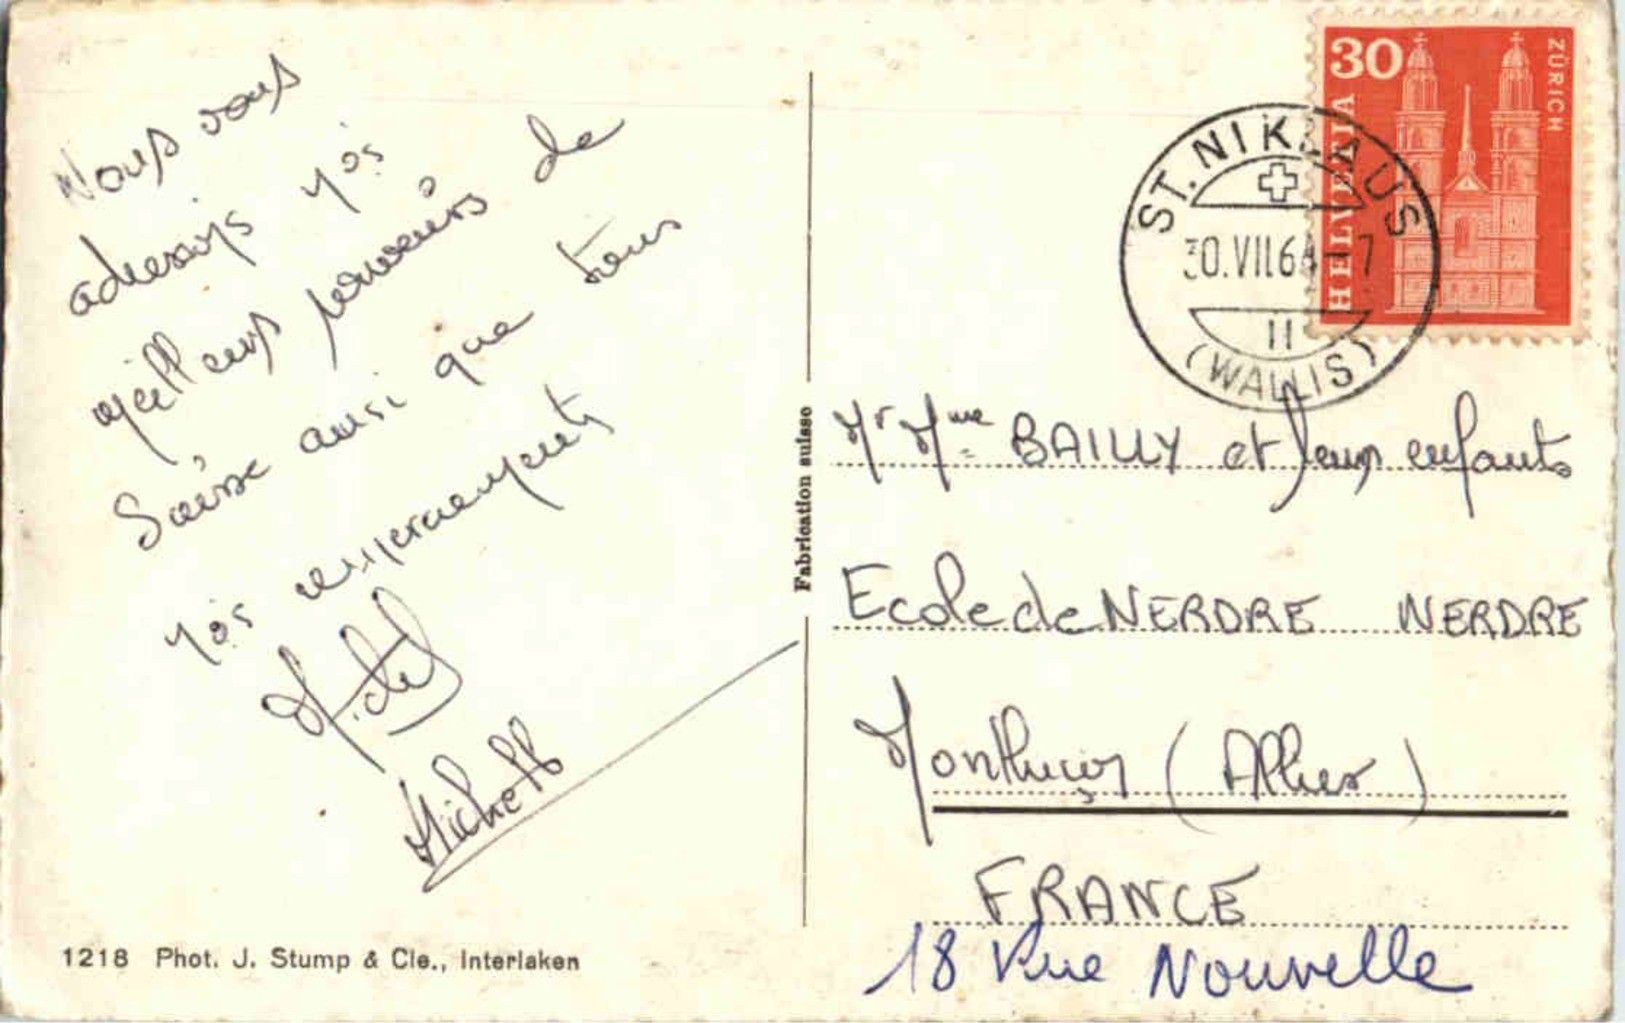 Nous vous
adressons nos
meilleurs souvenirs de
Suisse ainsi que tous
nos remerciements
Michel
Michelle
1218 Phot. J. Stump & Cie., Interlaken
Fabrication suisse
30
ZÜRICH
HELVETIA
ST. NIKLAUS
30.VII.64-7
II
(WALLIS)
Mr Mme BAILLY et leurs enfants
Ecole de NERDRE NERDRE
Montluçon (Allier)
FRANCE
18 Rue Nouvelle